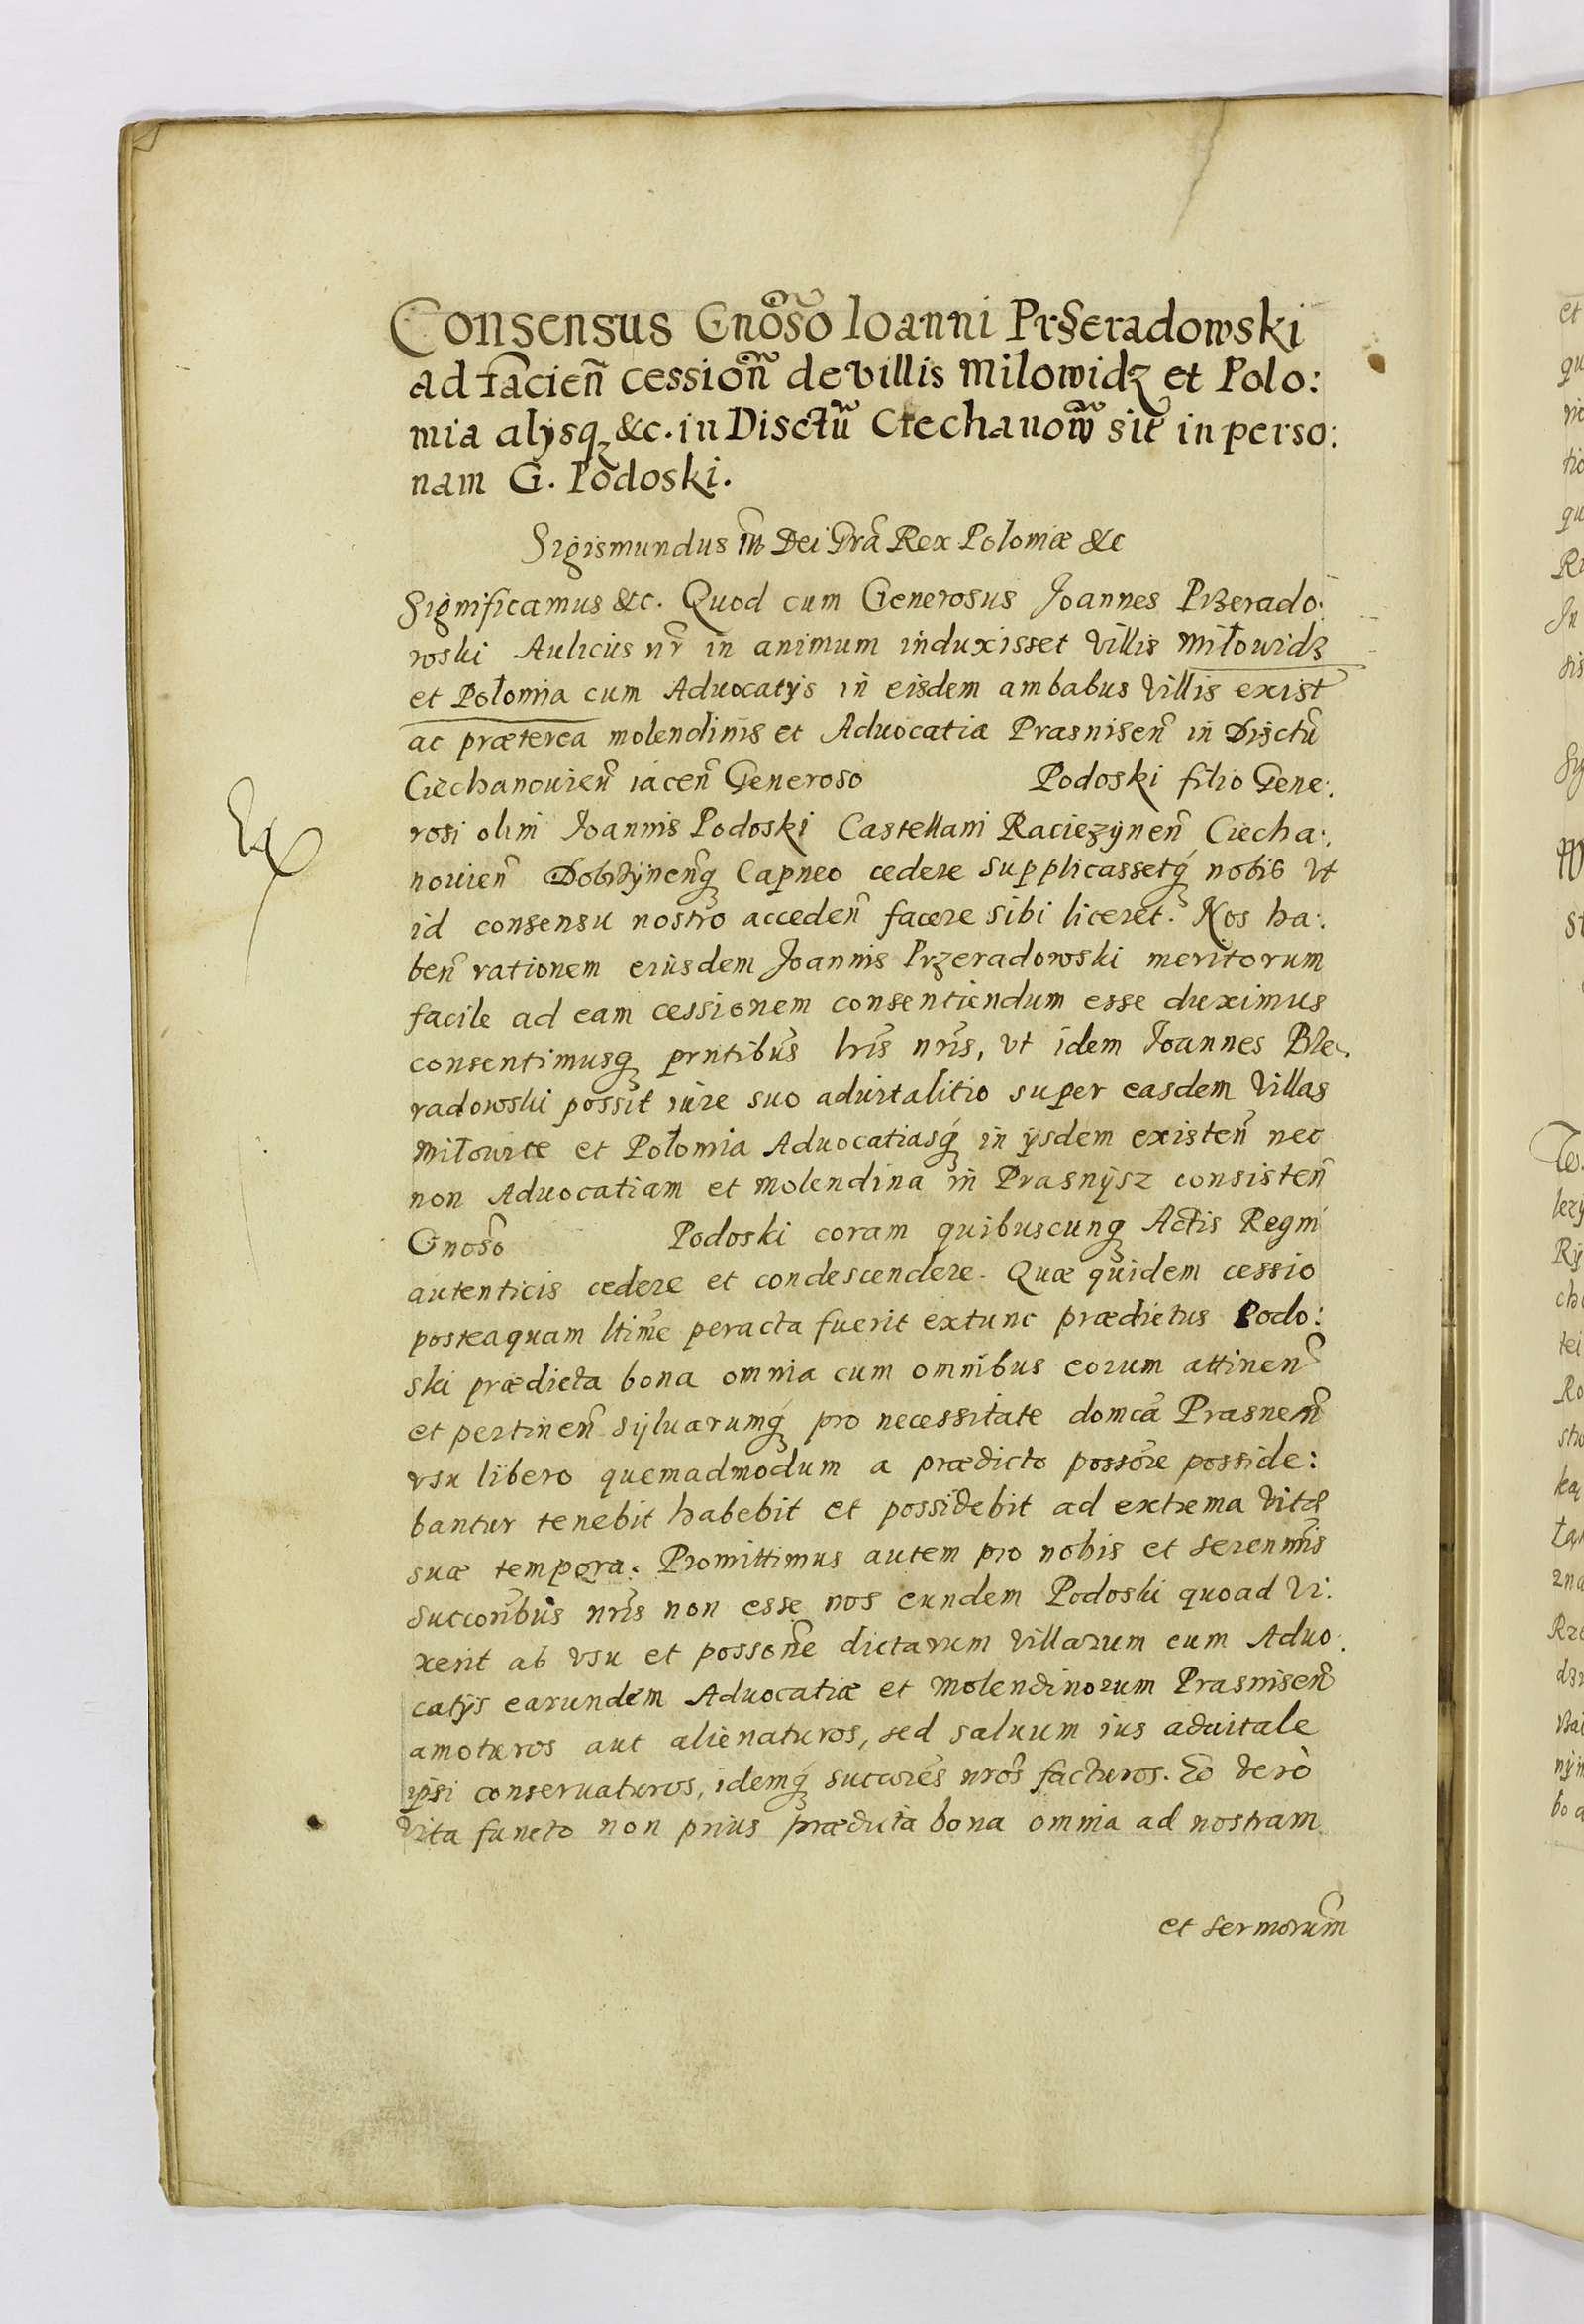 Consensus Gnõso Ioanni Przeradowski
ad facień cessioñ de villis Milowidz et Polo:
mia alÿsqꝫ &c. in Disctũ Ciechanow̃ sit̃ in perso:
nam G. Podoski.
Sigismundus III Dei Grã Rex Poloniæ &c
Significamus &c. Quod cum Generosus Joannes Przerado:
wski Aulicus nr̃ in animum induxisset villis Miłowidz
et Połomia cum Aduocatÿs in eisdem ambabus villis exist̃
ac præterea molendinis et Aduocatia Prasniseñ in Disctũ
Ciechanouień iaceñ Generoso Podoski filio Gene:
rosi olim Joannis Podoski Castellani Raciezÿneñ Ciecha:
nouień Dobrzÿneñqꝫ Capneo cedere supplicassetqꝫ nobis vt
id consensu nostro accedeñ facere sibi liceret. Nos ha:
beñ rationem eiusdem Joannis Przeradowski meritorum
facile ad eam cessionem consentiendum esse duximus
consentimusqꝫ prntibus̃ lris̃ nris̃, vt idem Joannes Prze:
radowski possit iure suo aduitalitio super easdem villas
Miłowice et Połomia Aduocatiasqꝫ in ÿsdem existeñ nec
non Aduocatiam et molendina in Prasnÿsz consisteñ
Gnoso᷃ Podoski coram quibuscunqꝫ Actis Regni
autenticis cedere et condescendere. Quæ quidem cessio
posteaquam ltime᷃ peracta fuerit extunc prædictus Podo:
ski prædicta bona omnia cum omnibus eorum attineñ
et pertineñ sÿluarumqꝫ pro necessitate domcã Prasneñ
vsu libero quemadmodum a prædicto possõre posside:
bantur tenebit habebit et possidebit ad extrema vitæ
suæ tempora. Promittimus autem pro nobis et serenm̃is
succorib̃us nris̃ non esse nos eundem Podoski quoad vi:
xerit ab vsu et possone᷃ dictarum villarum cum Aduo:
catÿs earundem Aduocatiæ et molendinorum Prasniseñ
amoturos aut alienaturos, sed saluum ius aduitale
ipsi conseruaturos, idemqꝫ succores̃ nros̃ facturos. Eo verò
vita functo non prius prædicta bona omnia ad nostram
et sermorum̃